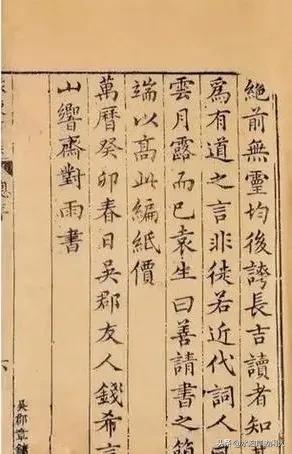 絶前無靈均後誇長吉讀者知其
爲有道之言非徒若近代詞人
雲月露而已袁生曰善請書之簡
端以高此編紙價
萬曆癸卯春日吳郡友人錢希言
山響齋對雨書
吳郡章鏞